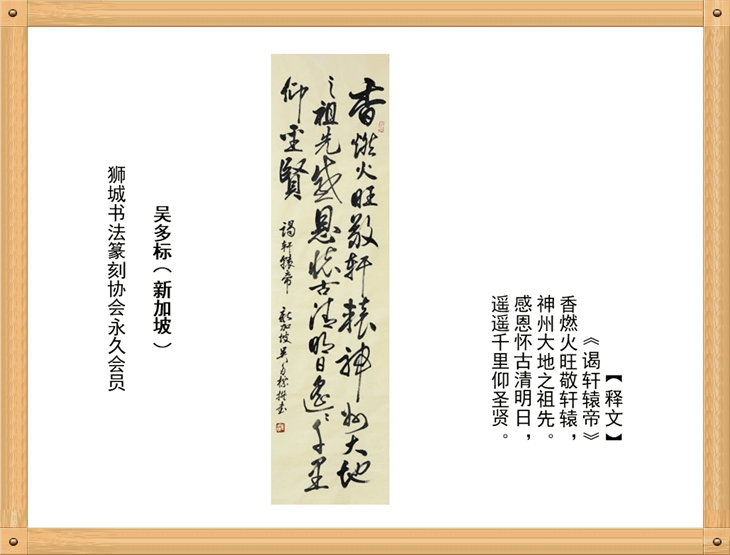 【释文】
《谒轩辕帝》
香燃火旺敬轩辕，
神州大地之祖先。
感恩怀古清明日，
遥遥千里仰圣贤。
香燃火旺敬轩辕神州大地
之祖先感恩怀古清明日遥遥千里
仰圣賢
谒轩辕帝 新加坡吴多标撰书
吴多标（新加坡）
狮城书法篆刻协会永久会员